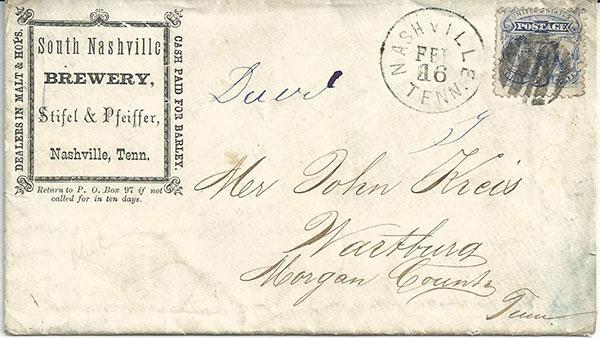 DEALERS IN MALT & HOPS.
South Nashville
BREWERY,
Stifel & Pfeiffer,
Nashville, Tenn.
CASH PAID FOR BARLEY.
Return to P. O. Box 97 if not
called for in ten days.
NASHVILLE
FEB
16
TENN.
POSTAGE
Mer John Kreis
Wartburg
Morgan County
Tenn